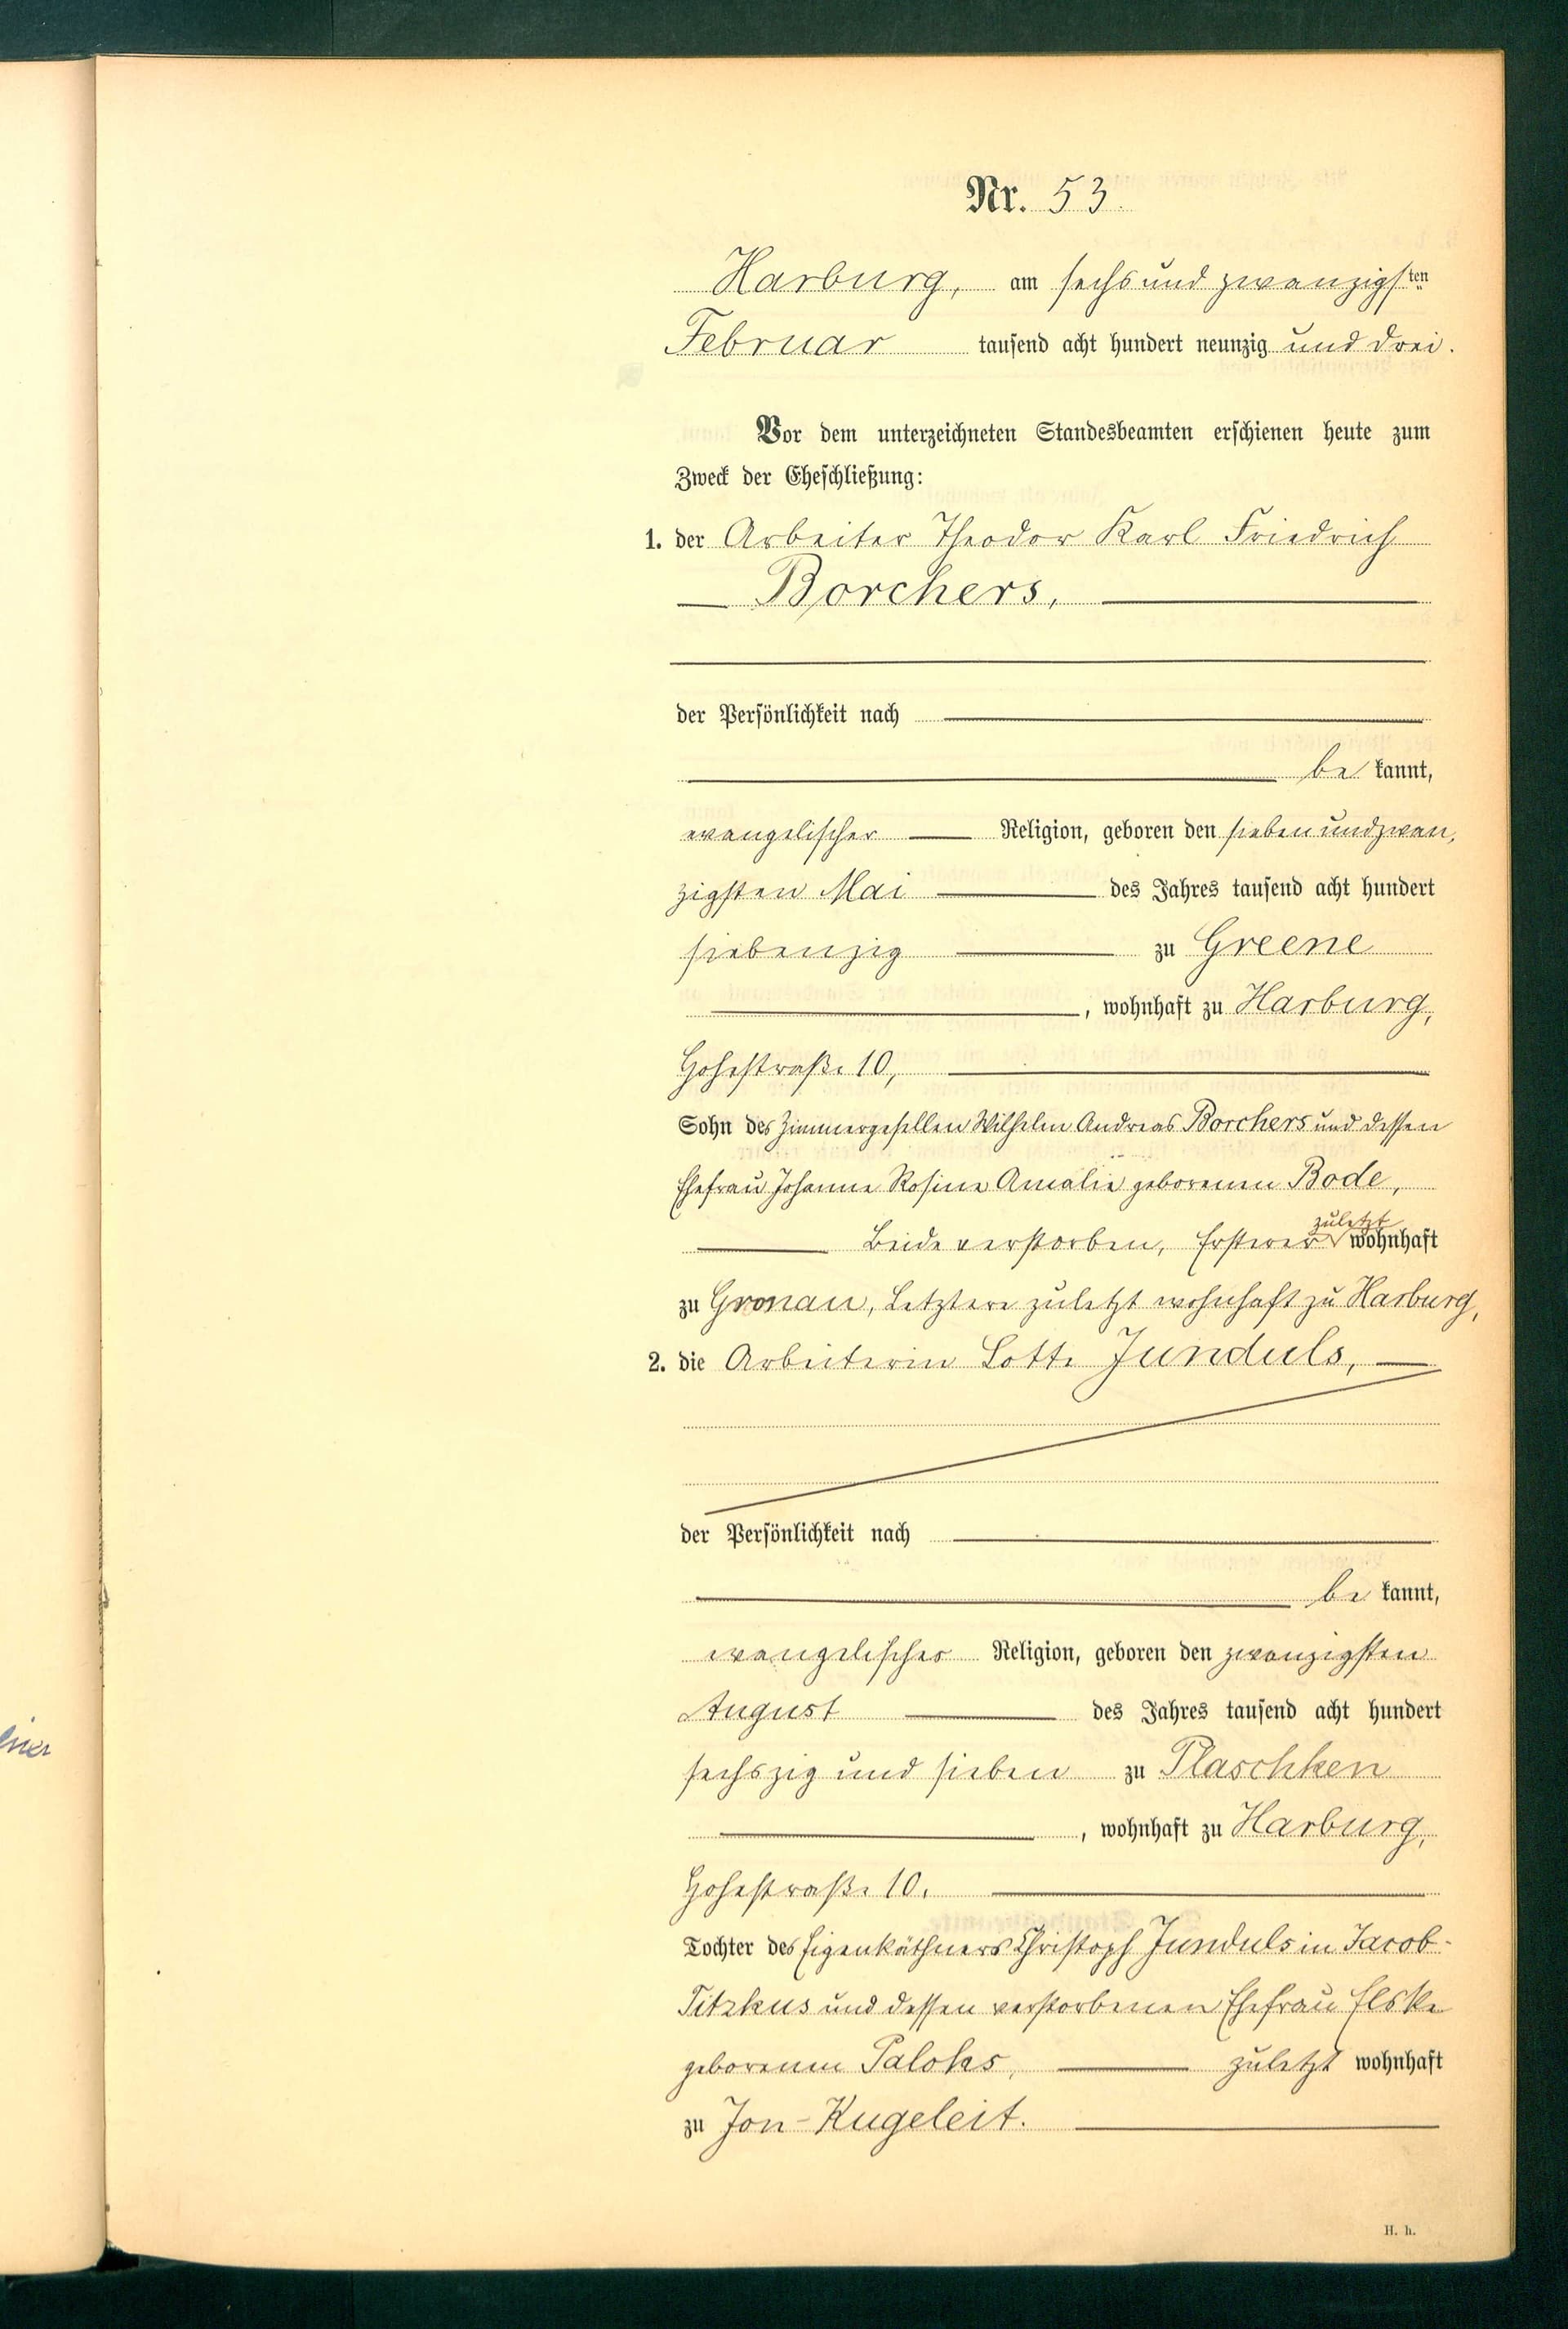 Nr. 53.
Harburg, am sechsundzwanzigsten
Februar tausend acht hundert neunzig und drei.
Vor dem unterzeichneten Standesbeamten erschienen heute zum
Zweck der Eheschließung:
1. der Arbeiter Theodor Karl Friedrich
Borchers,
der Persönlichkeit nach
be kannt,
evangelischer Religion, geboren den siebenundzwan-
zigsten Mai des Jahres tausend acht hundert
siebenzig zu Greene
, wohnhaft zu Harburg,
Hohestraße 10,
Sohn des Zimmergesellen Wilhelm Andreas Borchers und dessen
Ehefrau Johanne Rosine Amalie geborenen Bode,
zuletzt
Beide verstorben, Ersterer wohnhaft
zu Gronau, Letztere zuletzt wohnhaft zu Harburg,
2. die Arbeiterin Lotte Junduls,
der Persönlichkeit nach
be kannt,
evangelischer Religion, geboren den zwanzigsten
August des Jahres tausend acht hundert
sechszig und sieben zu Plaschken
, wohnhaft zu Harburg,
Hohestraße 10.
Tochter des Eigenkäthners Christoph Junduls in Jacob-
Titzkus und dessen verstorbenen Ehefrau Elske
geborenen Paloks, zuletzt wohnhaft
zu Jon-Kugeleit.
H. h.